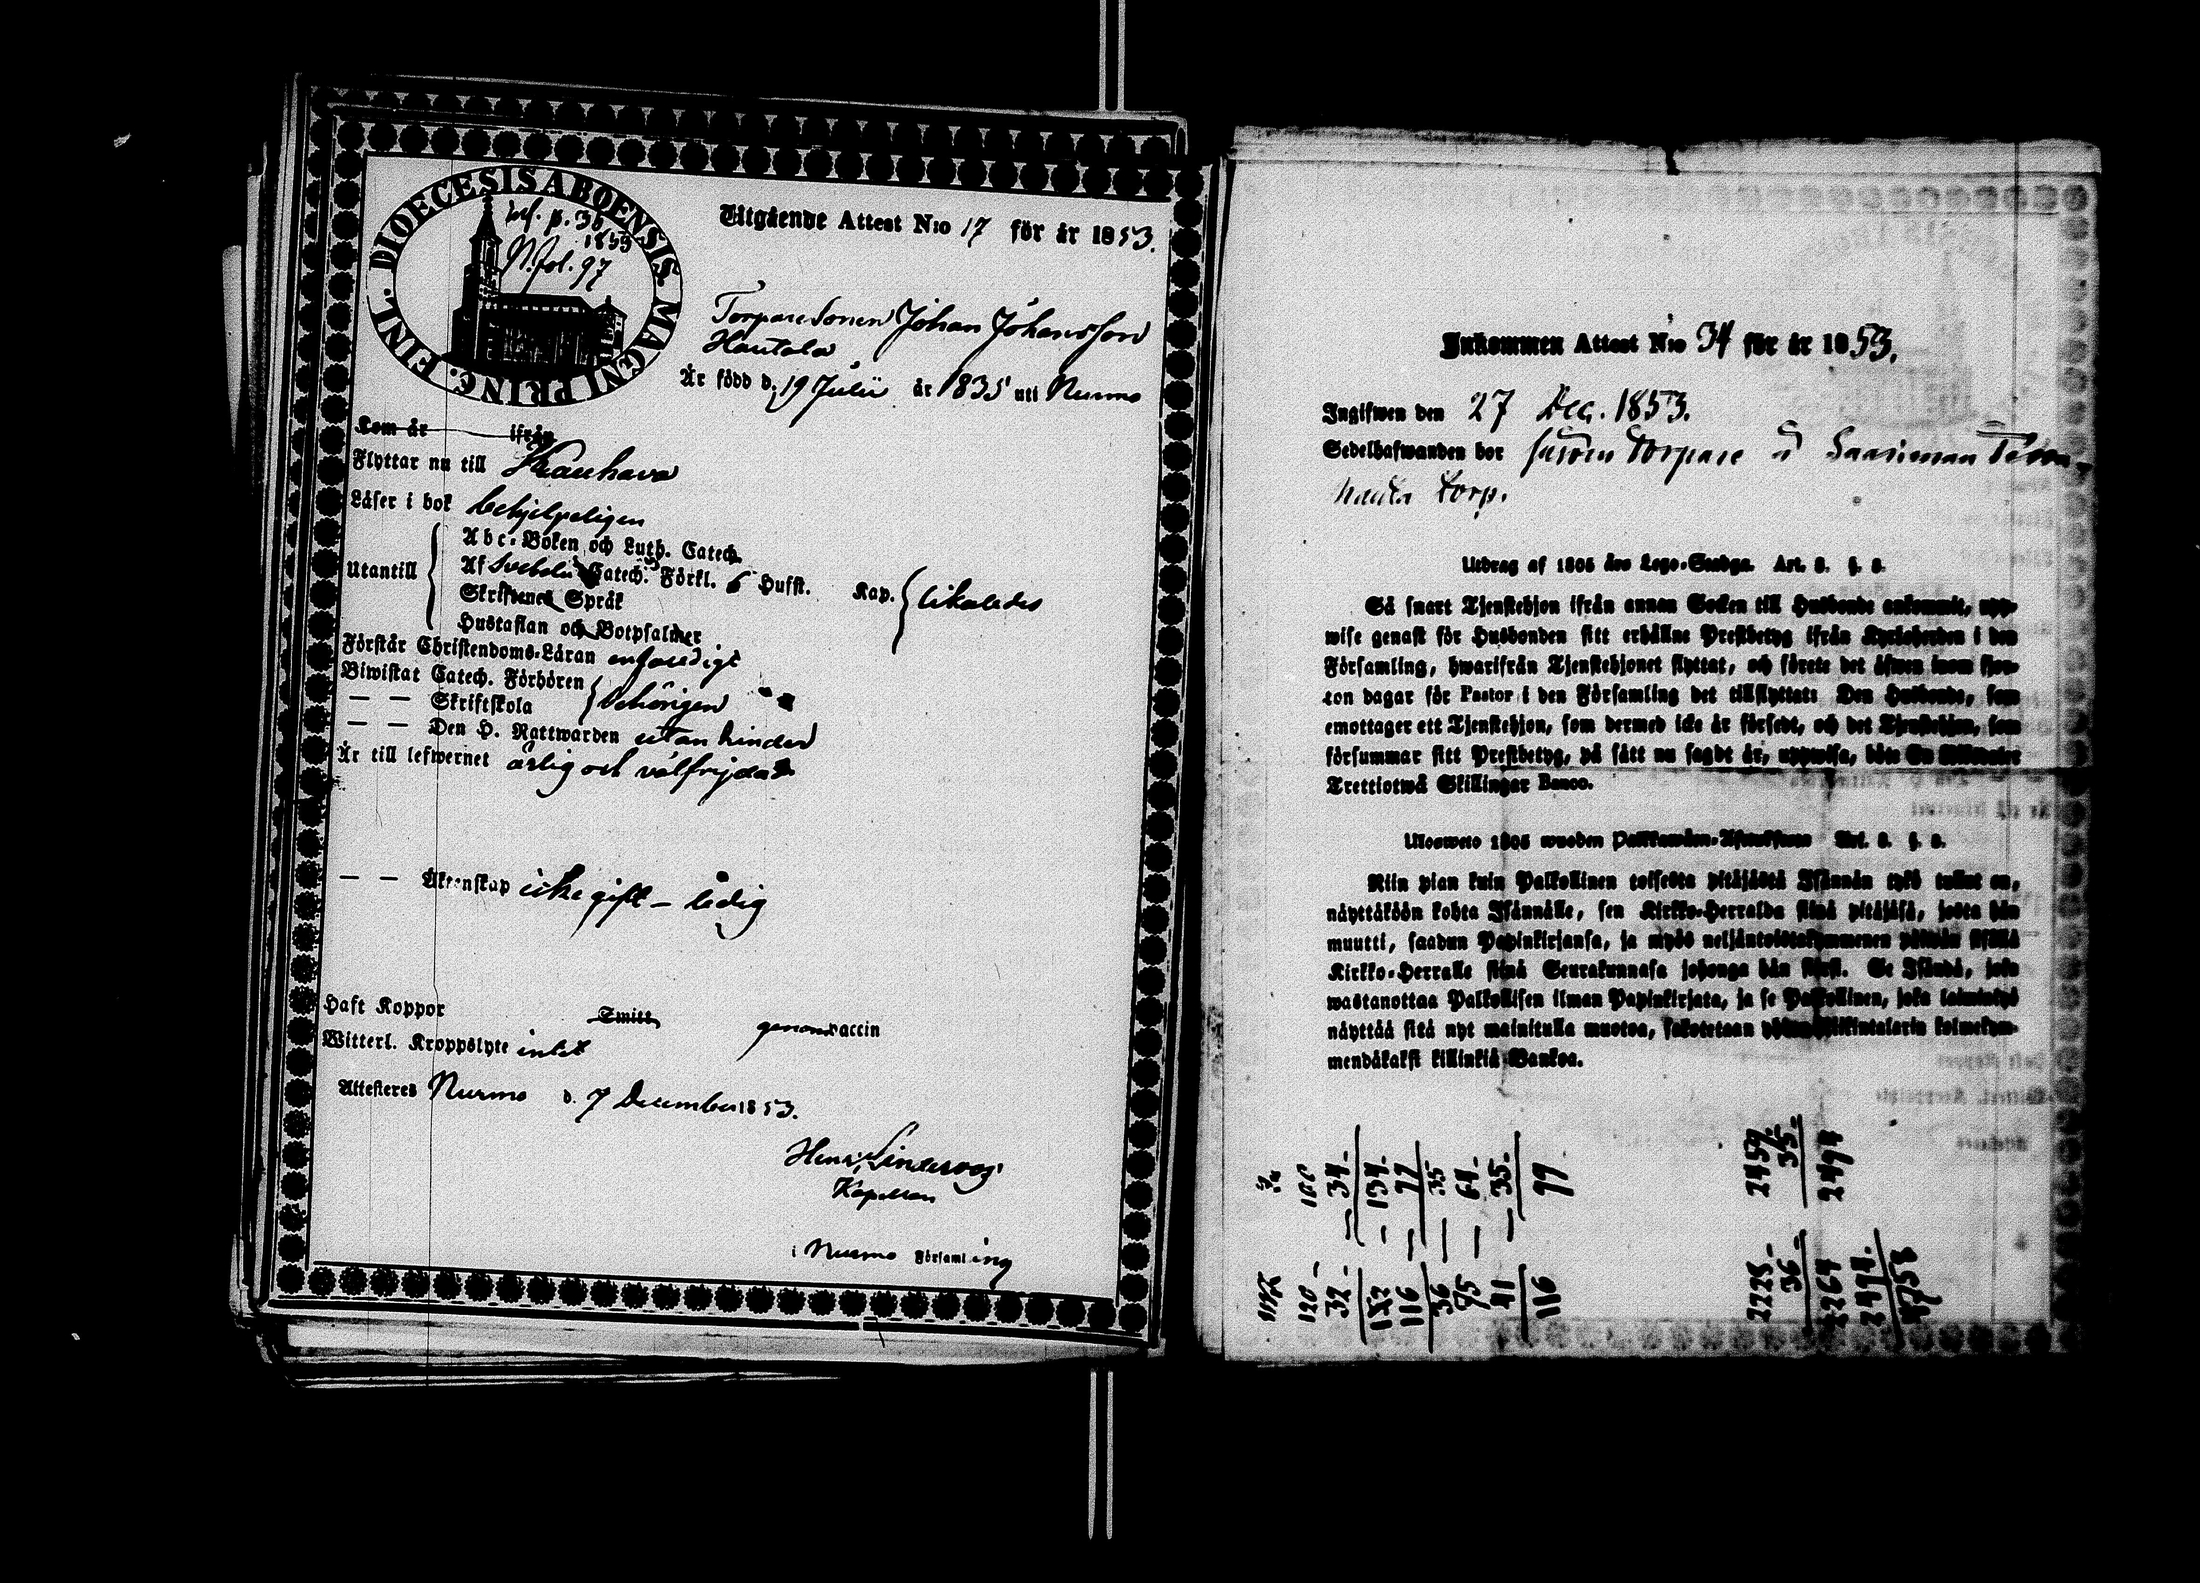 DIOECESIS ABOENSIS. MAGNI PRINC. FINL.
inf. p. 36
1853
N. fol. 97
Utgående Attest N:o 17 för år 1853.
Torpare Sonen Johan Johansson
Hautala
Är född d. 19 Julii år 1835 uti Nurmo
Kom år ifrån
Flyttar nu till Kauhava
Läser i bok behjelpeligen
Utantill
Abc-Boken och Luth. Catech.
Af Svebelii Catech. Förkl. 6 Hufst.
Skriftenes Språk
Hustaflan och Botpsalmer
Kap. likaledes
Förstår Christendoms-Läran enfaldigt
Biwistat Catech. Förhören
— — Skriftskola behörigen
— — Den H. Nattwarden utan hinder
Är till lefwernet ärlig och välfrejdad
— — Äktenskap icke gift – ledig
Haft Koppor Smitt genom vaccin
Witterl. Kroppslyte intet
Attesteres Nurmo d. 7 December 1853.
Henr. Linderoos
Kapellan
i Nurmo Församling
Inkommen Attest N:o 34 för år 1853.
Ingifwen den 27 Dec. 1853.
Sedelhafwanden bor såsom Torpare å Saariman
torp.
Utdrag af 1805 års Lego-Stadga. Art. 3. §. 8.
Så snart Tjenstehjon ifrån annan Socken till Husbonde ankommit, upp-
wise genast för Husbonden sitt erhållne Prestbetyg ifrån Kyrkoherden i den
Församling, hwarifrån Tjenstehjonet flyttat, och förete det äfwen inom fjor-
ton dagar för Pastor i den Församling det tillflyttat: Den Husbonde, som
emottager ett Tjenstehjon, som dermed icke är försedt, och det Tjenstehjon, som
försummar sitt Prestbetyg, på sätt nu sagdt är, uppwisa, böte En Riksdaler
Trettiotwå Skillingar Banco.
Ulosweto 1805 wuoden Palkkawäen-Asetuksesta Art. 3. §. 8.
Niin pian kuin Palkollinen toisesta pitäjästä Isännän tykö tullut on,
näyttäköön kohta Isännälle, sen Kirkko-Herralda siinä pitäjäsä, josta hän
muutti, saadun Papinkirjansa, ja myös neljäntoistakymmenen päiwän sisällä
Kirkko-Herralle siinä Seurakunnasa johonga hän siirsi. Se Isändä, joka
wastanottaa Palkollisen ilman Papinkirjata, ja se Palkollinen, joka laiminlyö
näyttää sitä nyt mainitulla muotoa, sakotetaan yhden Riikintalarin kolmekym-
mendäkaksi killinkiä Bankoa.
120 – 100
32 – 34
152 – 134
116 – 77
36 – 35
75 – 64
41 – 35
116 77
2225 – 2459
36 – 35
2264 2494
2494
4758